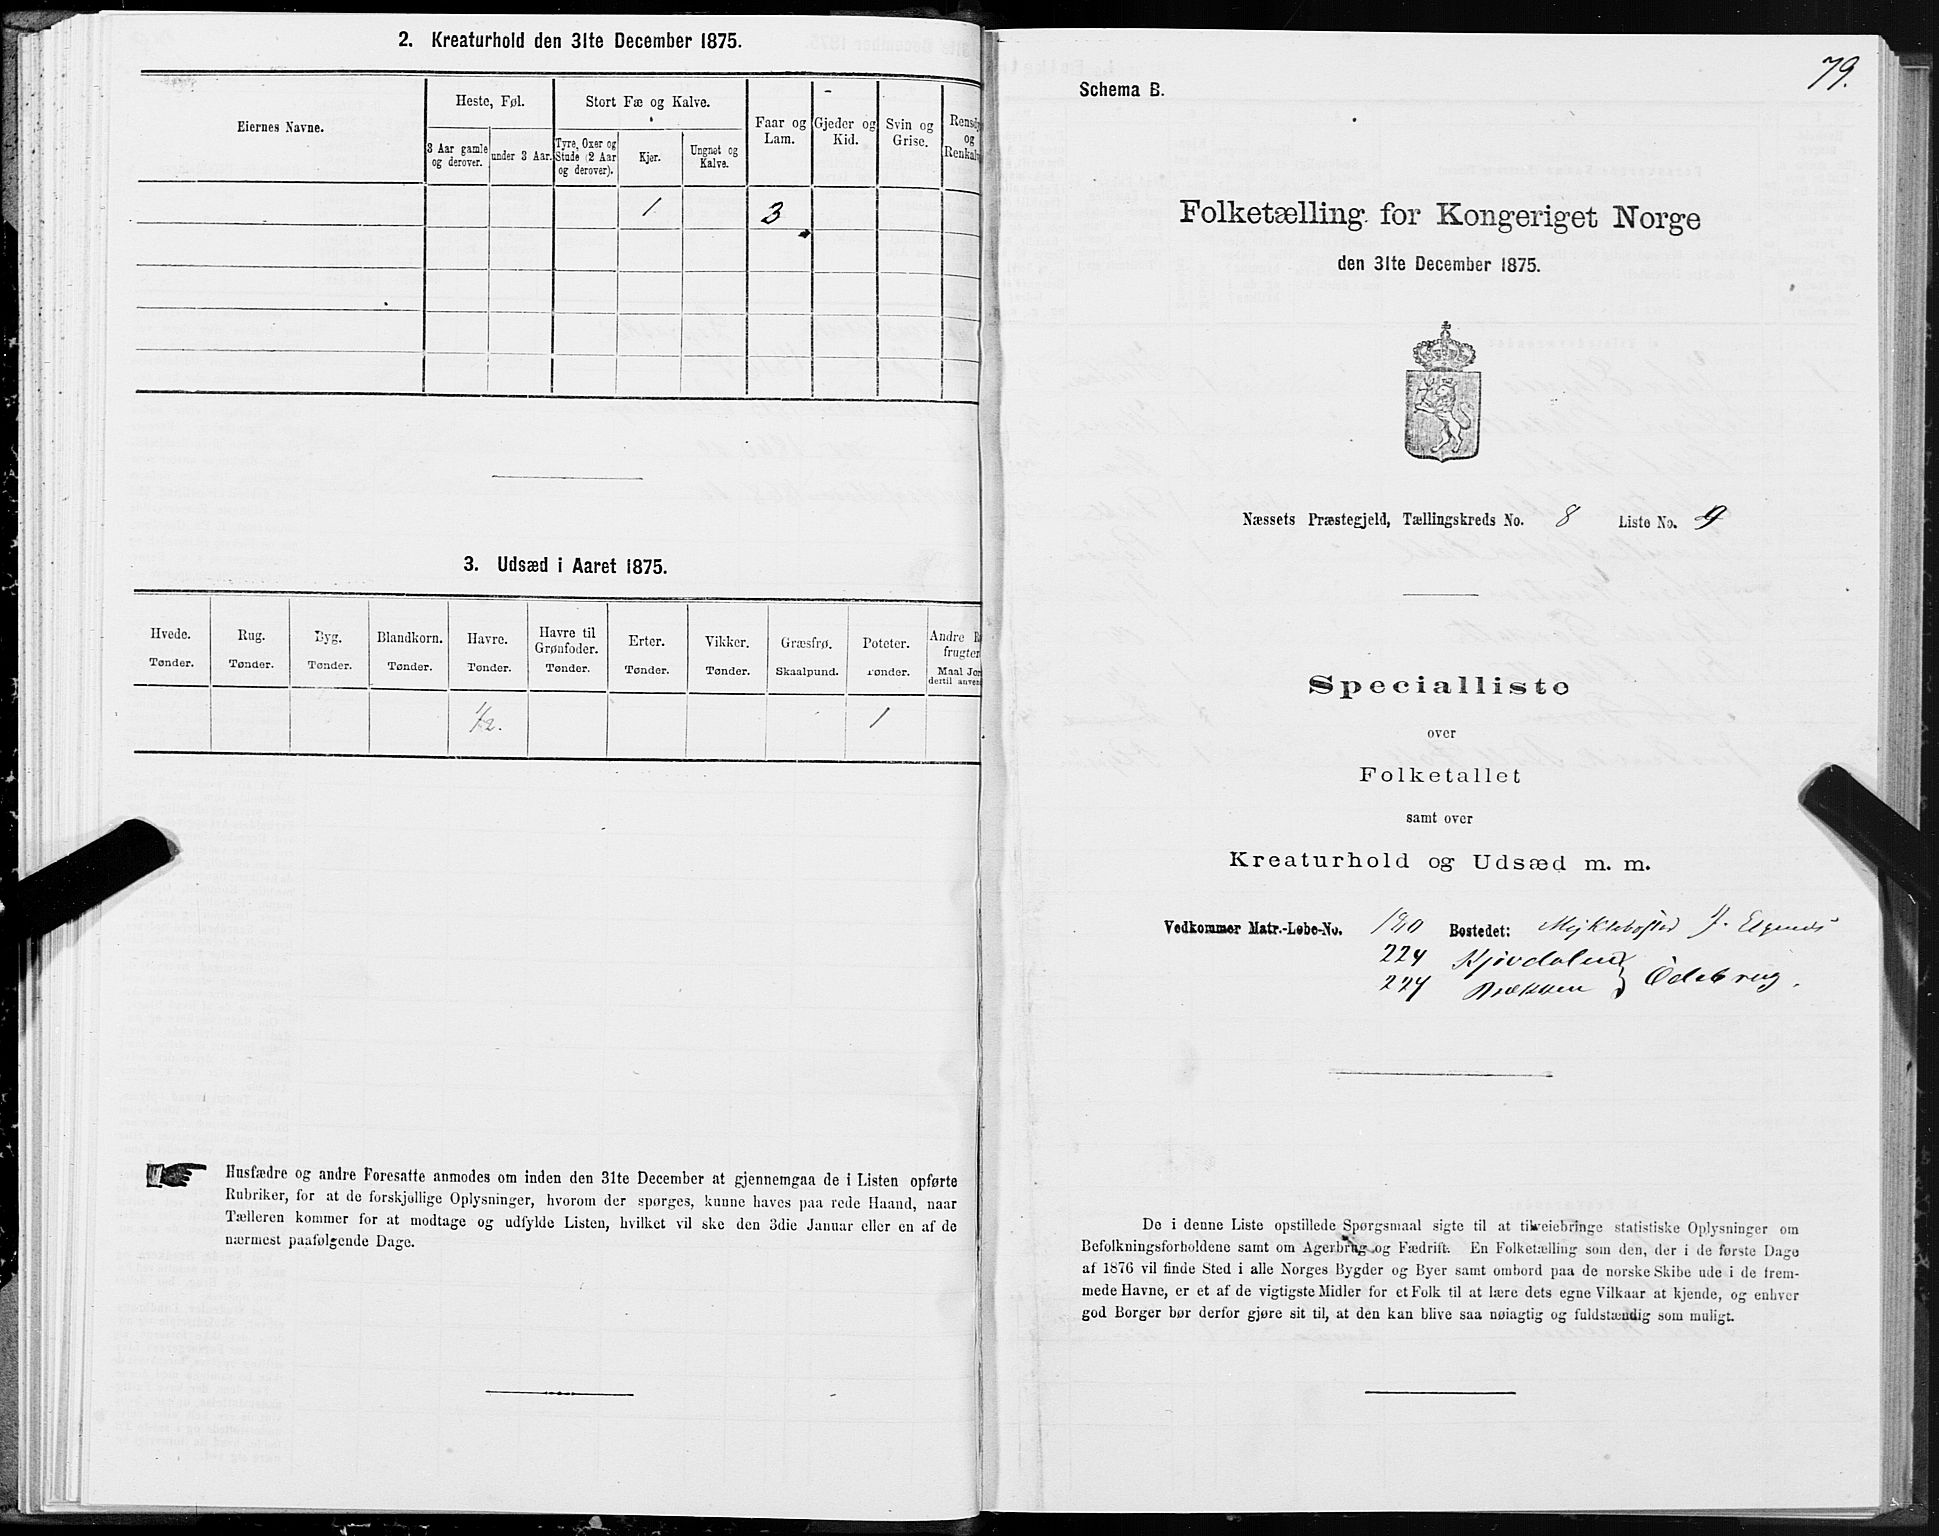 2. Kreaturhold den 31te December 1875.
Eiernes Navne.
Heste, Føl.
Stort Fæ og Kalve.
Faar og Lam.
Gjeder og Kid.
Svin og Grise.
Rensdy
og
Renkal
3 Aar gamle og derover.
under 3 Aar.
Tyre, Oxer og Stude (2 Aar og derover).
Kjør.
Ungnøt og Kalve.
1 3
3. Udsæd i Aaret 1875.
Hvede. Rug. Byg. Blandkorn. Havre. Havre til Grønfoder. Erter. Vikker. Græsfrø. Poteter. Andre R
frugter
Tønder. Tønder. Tønder. Tønder. Tønder. Tønder. Tønder. Tønder. Skaalpund. Tønder. Maal Jor
dertil anven
1/2. 1
Husfædre og andre Foresatte anmodes om inden den 31te December at gjennemgaa de i Listen opførte
Rubriker, for at de forskjellige Oplysninger, hvorom der spørges, kunne haves paa rede Haand, naar
Tælleren kommer for at modtage og udfylde Listen, hvilket vil ske den 3die Januar eller en af de
nærmest paafølgende Dage.
79.
Schema B.
Folketælling for Kongeriget Norge
den 31te December 1875.
Næssets Præstegjeld, Tællingskreds No. 8 Liste No. 9
Specialliste
over
Folketallet
samt over
Kreaturhold og Udsæd m. m.
Vedkommer Matr.-Løbe-No. 180 Bostedet: Myklebostad J. Elgenæs
224 Kjøvdalen
224 Bækken } Ödebrug.
De i denne Liste opstillede Spørgsmaal sigte til at tilveiebringe statistiske Oplysninger om
Befolkningsforholdene samt om Agerbrug og Fædrift. En Folketælling som den, der i de første Dage
af 1876 vil finde Sted i alle Norges Bygder og Byer samt ombord paa de norske Skibe ude i de frem-
mede Havne, er et af de vigtigste Midler for et Folk til at lære dets egne Vilkaar at kjende, og enhver
god Borger bør derfor gjøre sit til, at den kan blive saa nøiagtig og fuldstændig som muligt.